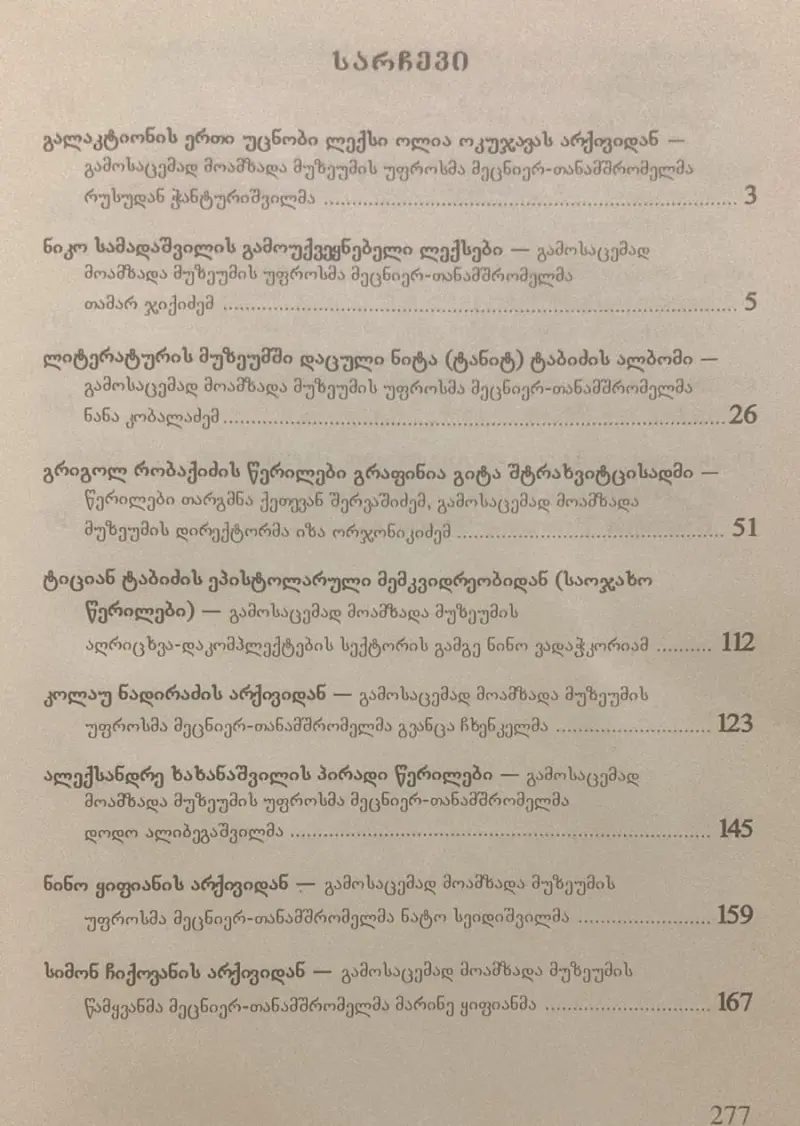 სარჩევი
გალაკტიონის ერთი უცნობი ლექსი ოლია ოკუჯავას არქივიდან —
გამოსაცემად მოამზადა მუზეუმის უფროსმა მეცნიერ-თანამშრომელმა
რუსუდან ჭანტურიშვილმა ........ 3
ნიკო სამადაშვილის გამოუქვეყნებელი ლექსები — გამოსაცემად
მოამზადა მუზეუმის უფროსმა მეცნიერ-თანამშრომელმა
თამარ ჯიქიძემ ........ 5
ლიტერატურის მუზეუმში დაცული ნიტა (ტანიტ) ტაბიძის ალბომი —
გამოსაცემად მოამზადა მუზეუმის უფროსმა მეცნიერ-თანამშრომელმა
ნანა კობალაძემ ........ 26
გრიგოლ რობაქიძის წერილები გრაფინია გიტა შტრახვიტცისადმი —
წერილები თარგმნა ქეთევან შერვაშიძემ, გამოსაცემად მოამზადა
მუზეუმის დირექტორმა იზა ორჯონიკიძემ ........ 51
ტიციან ტაბიძის ეპისტოლარული მემკვიდრეობიდან (საოჯახო
წერილები) — გამოსაცემად მოამზადა მუზეუმის
აღრიცხვა-დაკომპლექტების სექტორის გამგე ნინო ვადაჭკორიამ ........ 112
კოლაუ ნადირაძის არქივიდან — გამოსაცემად მოამზადა მუზეუმის
უფროსმა მეცნიერ-თანამშრომელმა გვანცა ჩხენკელმა ........ 123
ალექსანდრე ხახანაშვილის პირადი წერილები — გამოსაცემად
მოამზადა მუზეუმის უფროსმა მეცნიერ-თანამშრომელმა
დოდო ალიბეგაშვილმა ........ 145
ნინო ყიფიანის არქივიდან — გამოსაცემად მოამზადა მუზეუმის
უფროსმა მეცნიერ-თანამშრომელმა ნატო სეიდიშვილმა ........ 159
სიმონ ჩიქოვანის არქივიდან — გამოსაცემად მოამზადა მუზეუმის
წამყვანმა მეცნიერ-თანამშრომელმა მარინე ყიფიანმა ........ 167
277